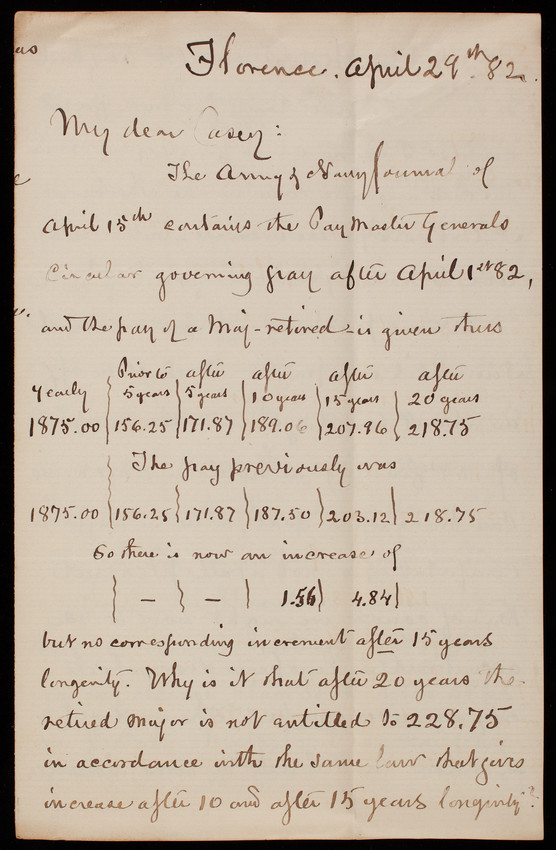 Florence. April 29th. 82.
My dear Casey:
The Army & Navy Journal of
April 15th contains the Pay Master Generals
Circular governing pay after April 1st 82,
and the pay of a Maj-retired is given thus
Yearly Prior to 5 years after 5 years after 10 years after 15 years after 20 years
1875.00 156.25 171.87 189.06 207.96 218.75
The pay previously was
1875.00 156.25 171.87 187.50 203.12 218.75
So there is now an increase of
— — 1.56 4.84
but no corresponding increment after 15 years
longevity. Why is it that after 20 years the
retired Major is not entitled to 228.75
in accordance with the same law that gives
increase after 10 and after 15 years longevity?